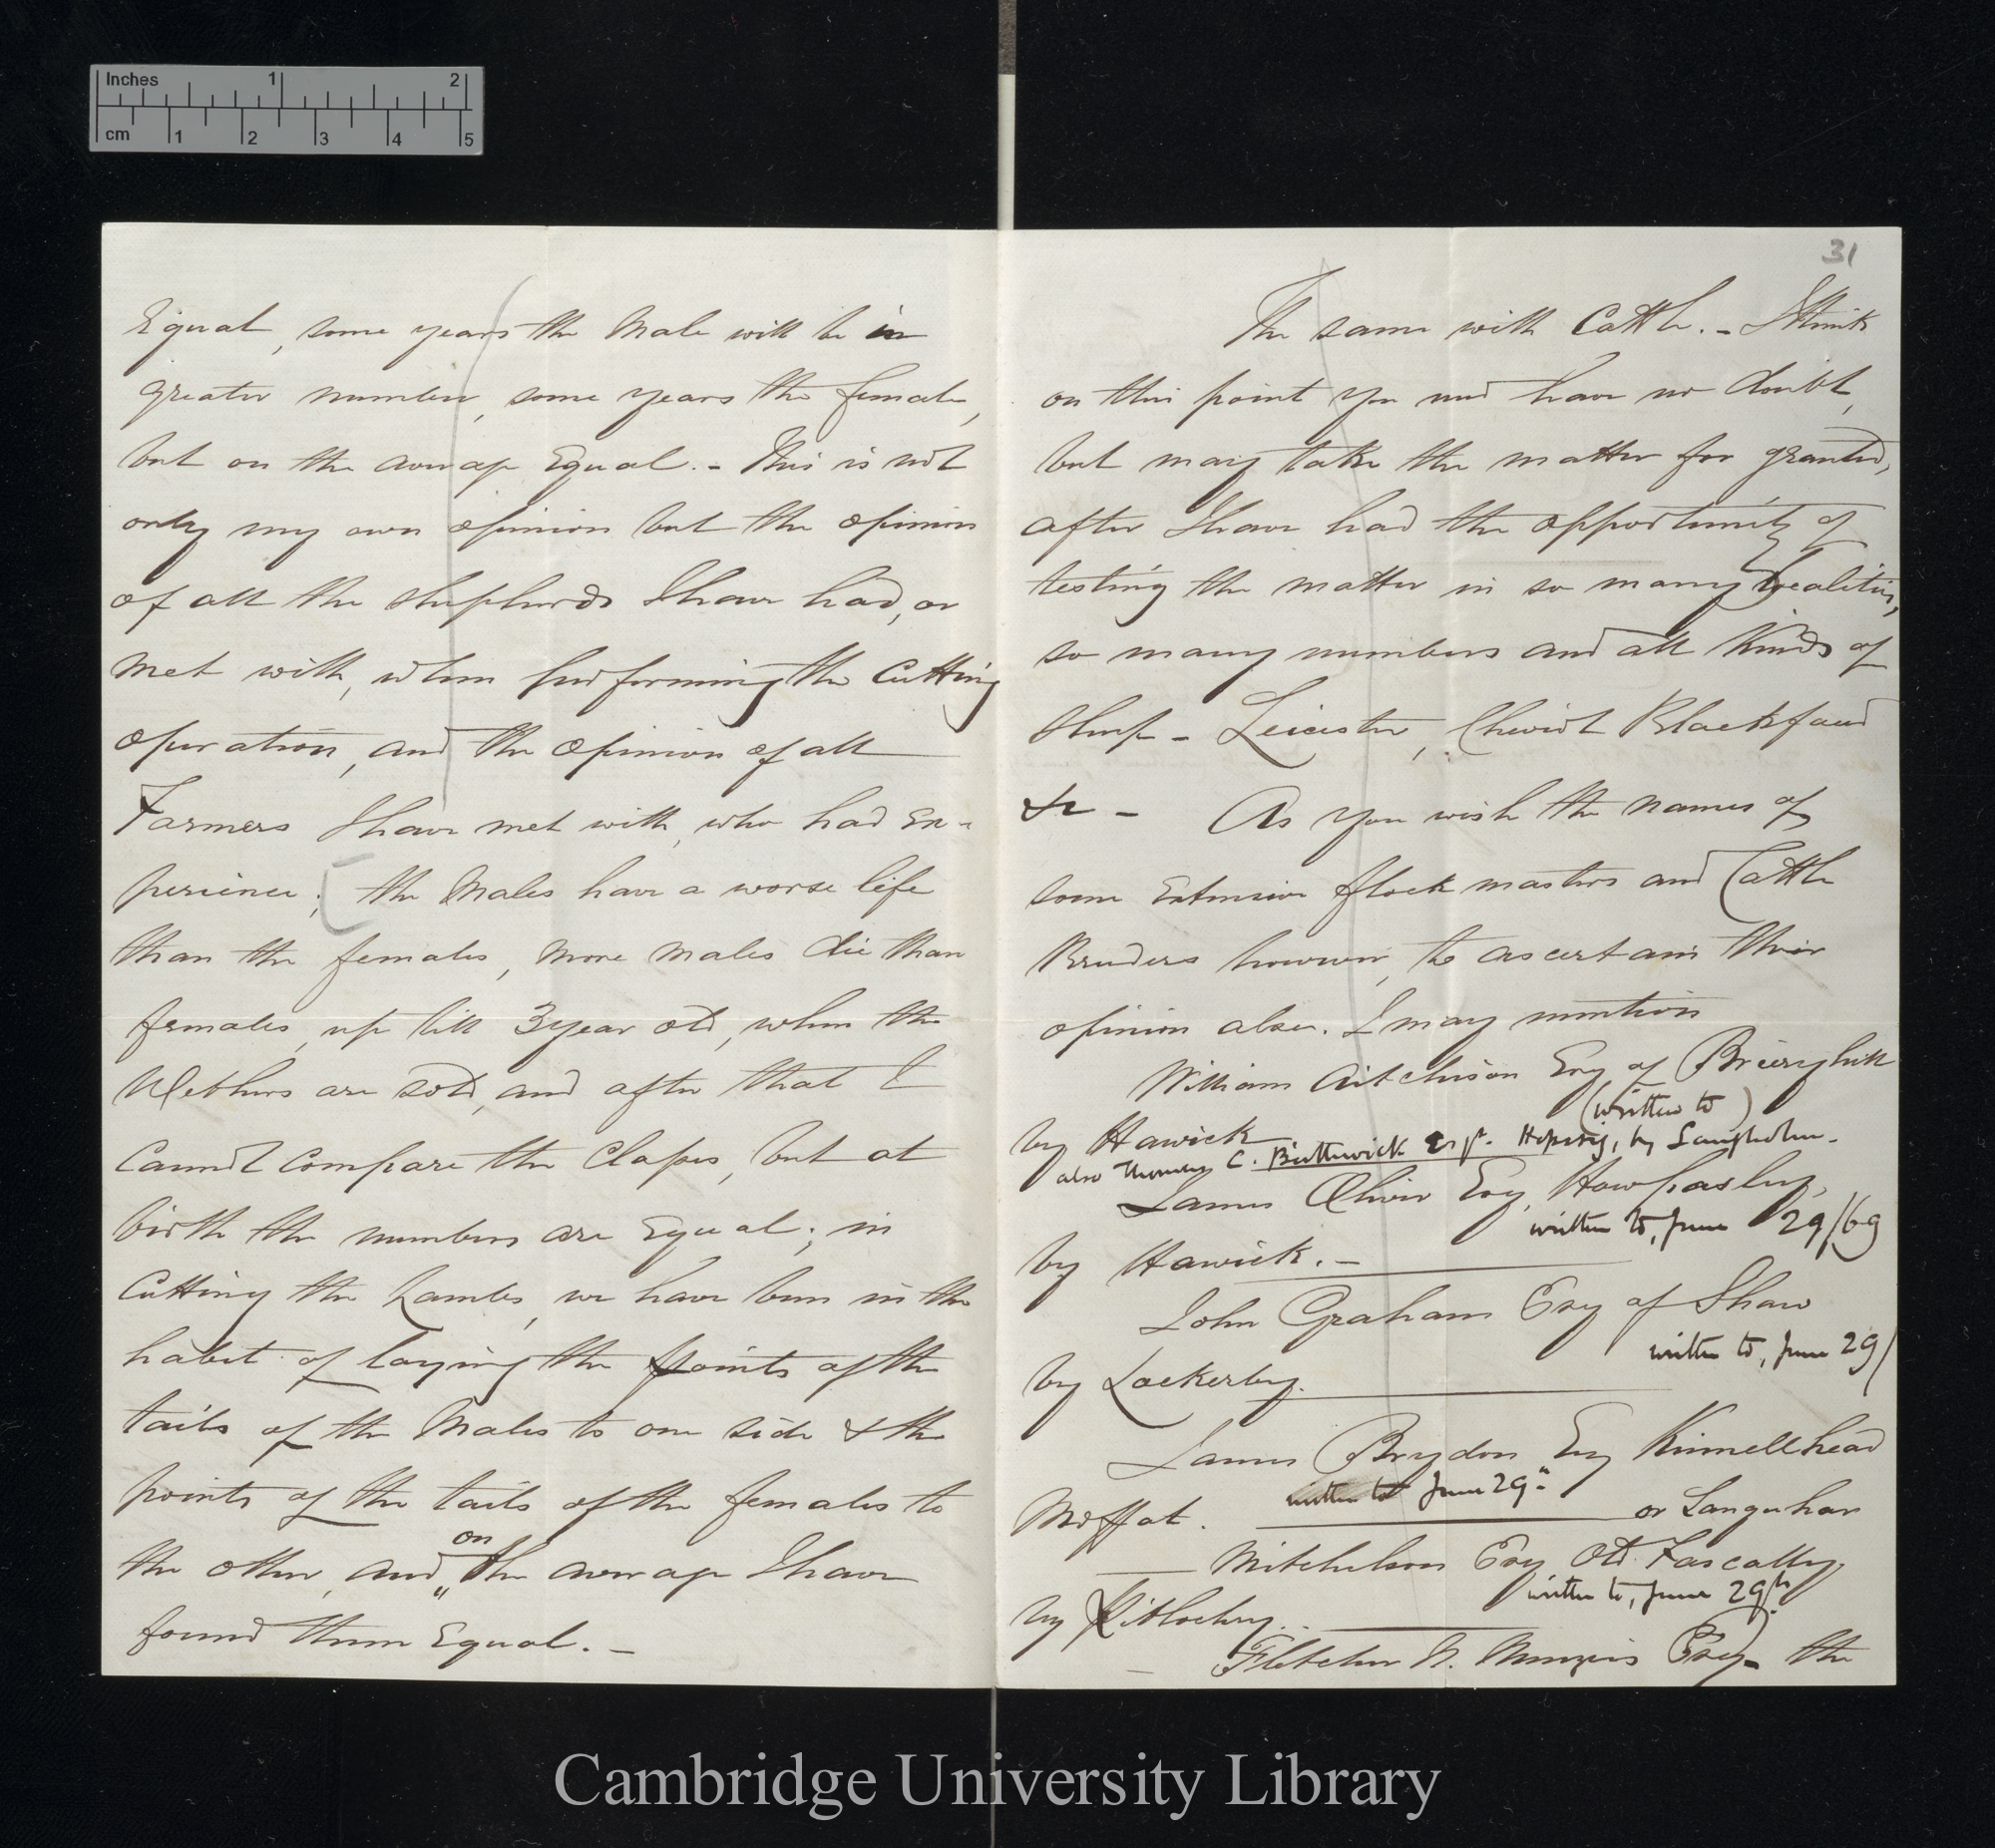 Inches 1 2
cm 1 2 3 4 5
Equal, some years the Male will be in
greater number, some years the female,
but on the average Equal. - This is not
only my own opinion but the opinion
of all the shepherds I have had, or
met with, when performing the Cutting
operation, and the opinion of all
Farmers I have met with, who had Ex-
perience; [the Males have a worse life
than the females, more males die than
females, up till 3 year old, when the
Wethers are sold, and after that I
Cannot Compare the Classes, but at
birth the numbers are Equal; in
Cutting the Lambs, we have been in the
habit of laying the points of the
tails of the Males to one side & the
points of the tails of the females to
on
the other, and the average I have
found them Equal. -
31
The same with Cattle. - I think
on this point you need have no doubt,
but may take the matter for granted,
after I have had the opportunity of
testing the matter in so many localities,
so many numbers and all Kinds of
Sheep - Leicester, Cheviot Blackfaced
&c - As you wish the names of
some Extensive flock masters and Cattle
Breeders however, to ascertain their
opinion also. I may mention
William Aitchison Esq of Brieryhill
(written to)
by Hawick
also Thomas C. Borthwick Esqr. Hopsrig, by Langholm.
James Oliver Esq, Howpasley,
written to, June 29/69
by Hawick. -
John Graham Esq of Shaw
written to, June 29/
by Lockerby.
James Brydon Esq Kinnelhead
written to June 29"
Moffat. or
Mitchelson Esq Old Fascally,
written to, June 29th
by Pitlochry.
Fletcher N. Menzies Esq - the
Cambridge University Library